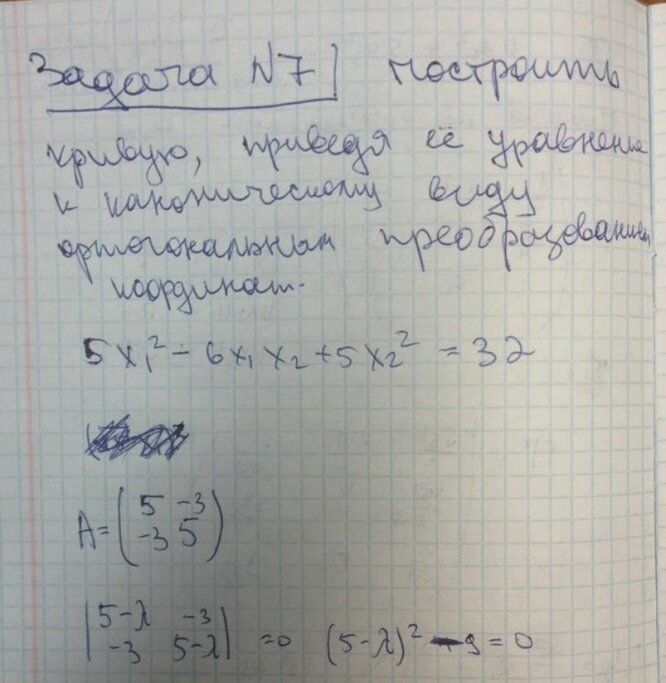 Задача N7 построить
кривую, приведя её уравнение
к каноническому виду
ортогональным преобразованием
координат.
5x₁² - 6x₁x₂ + 5x₂² = 32
A = (5 -3
-3 5)
|5-λ -3
-3 5-λ| = 0 (5-λ)² - 9 = 0